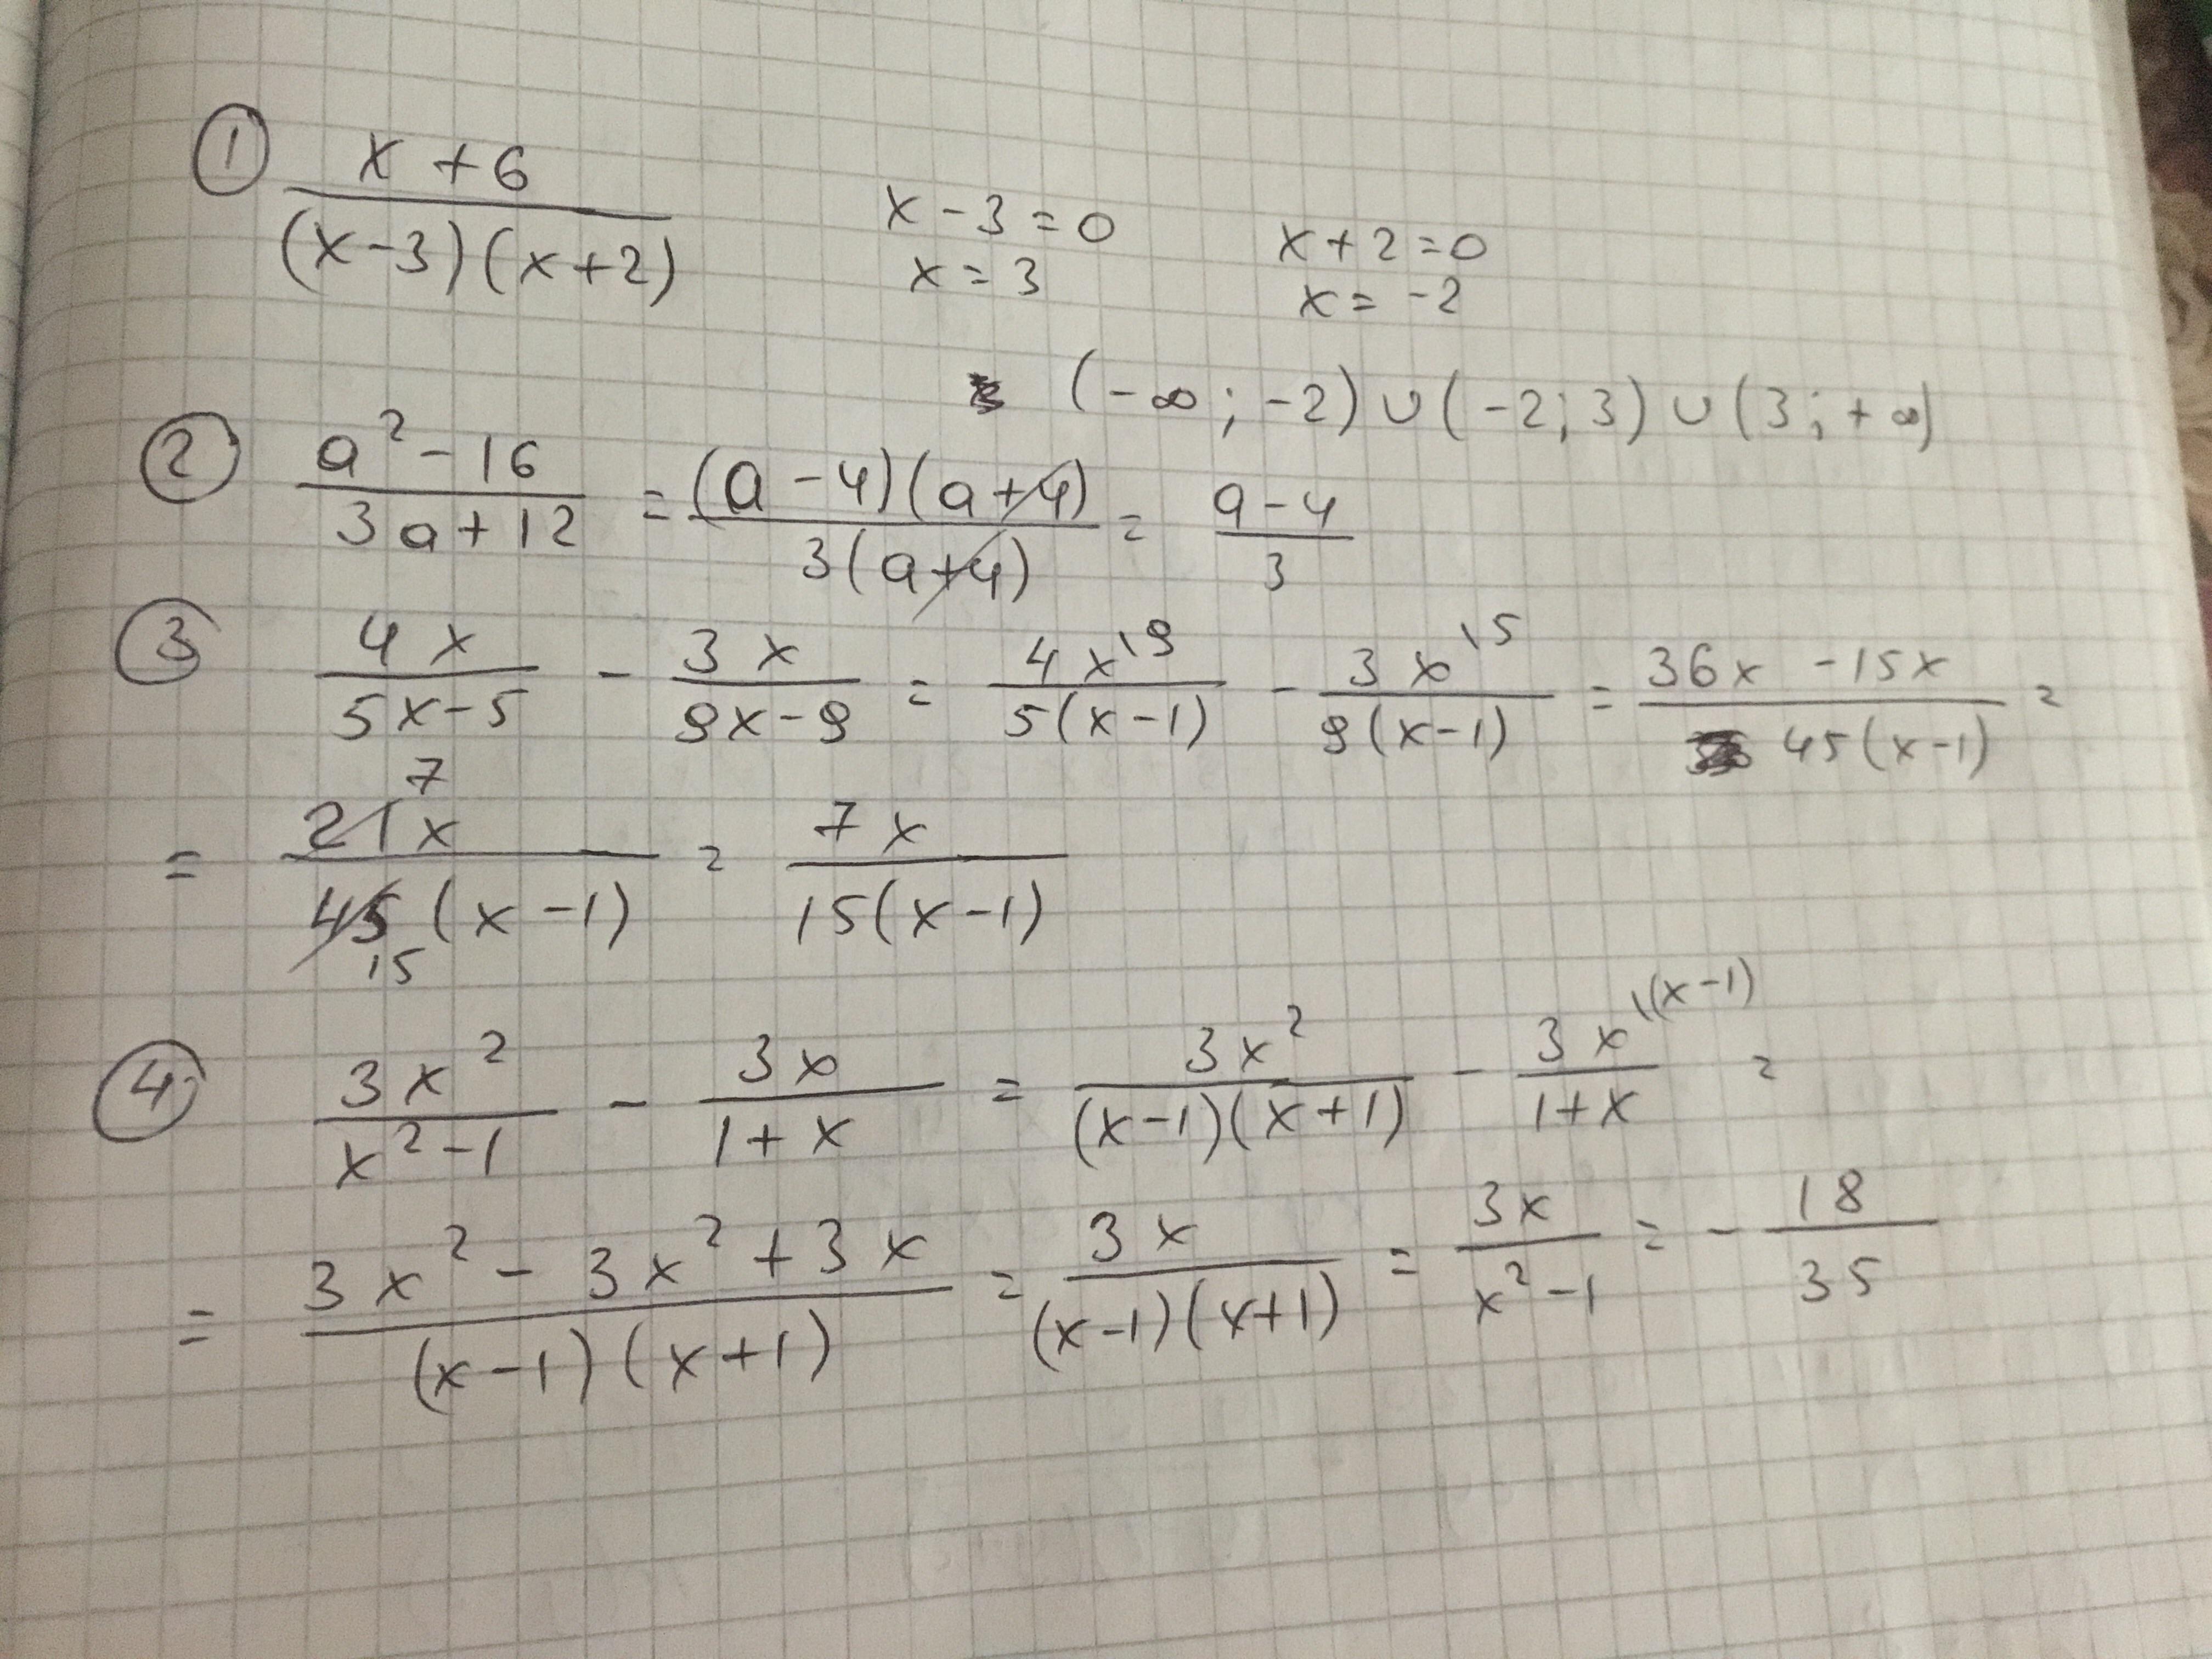 ① (x + 6)/((x-3)(x+2))   x - 3 = 0   x + 2 = 0
x = 3   x = -2
(-∞; -2) ∪ (-2; 3) ∪ (3; +∞)
② (a² - 16)/(3a + 12) = ((a - 4)(a + 4))/(3(a + 4)) = (a - 4)/3
③ 4x/(5x - 5) - 3x/(9x - 9) = 4x^{\9}/(5(x - 1)) - 3x^{\5}/(9(x - 1)) = (36x - 15x)/(45(x - 1)) =
= 21 7 x/(45 15 (x - 1)) = 7x/(15(x - 1))
④ 3x²/(x² - 1) - 3x/(1 + x) = 3x²/((x - 1)(x + 1)) - 3x^{\(x - 1)}/(1 + x) =
= (3x² - 3x² + 3x)/((x - 1)(x + 1)) = 3x/((x - 1)(x + 1)) = 3x/(x² - 1) = - 18/35